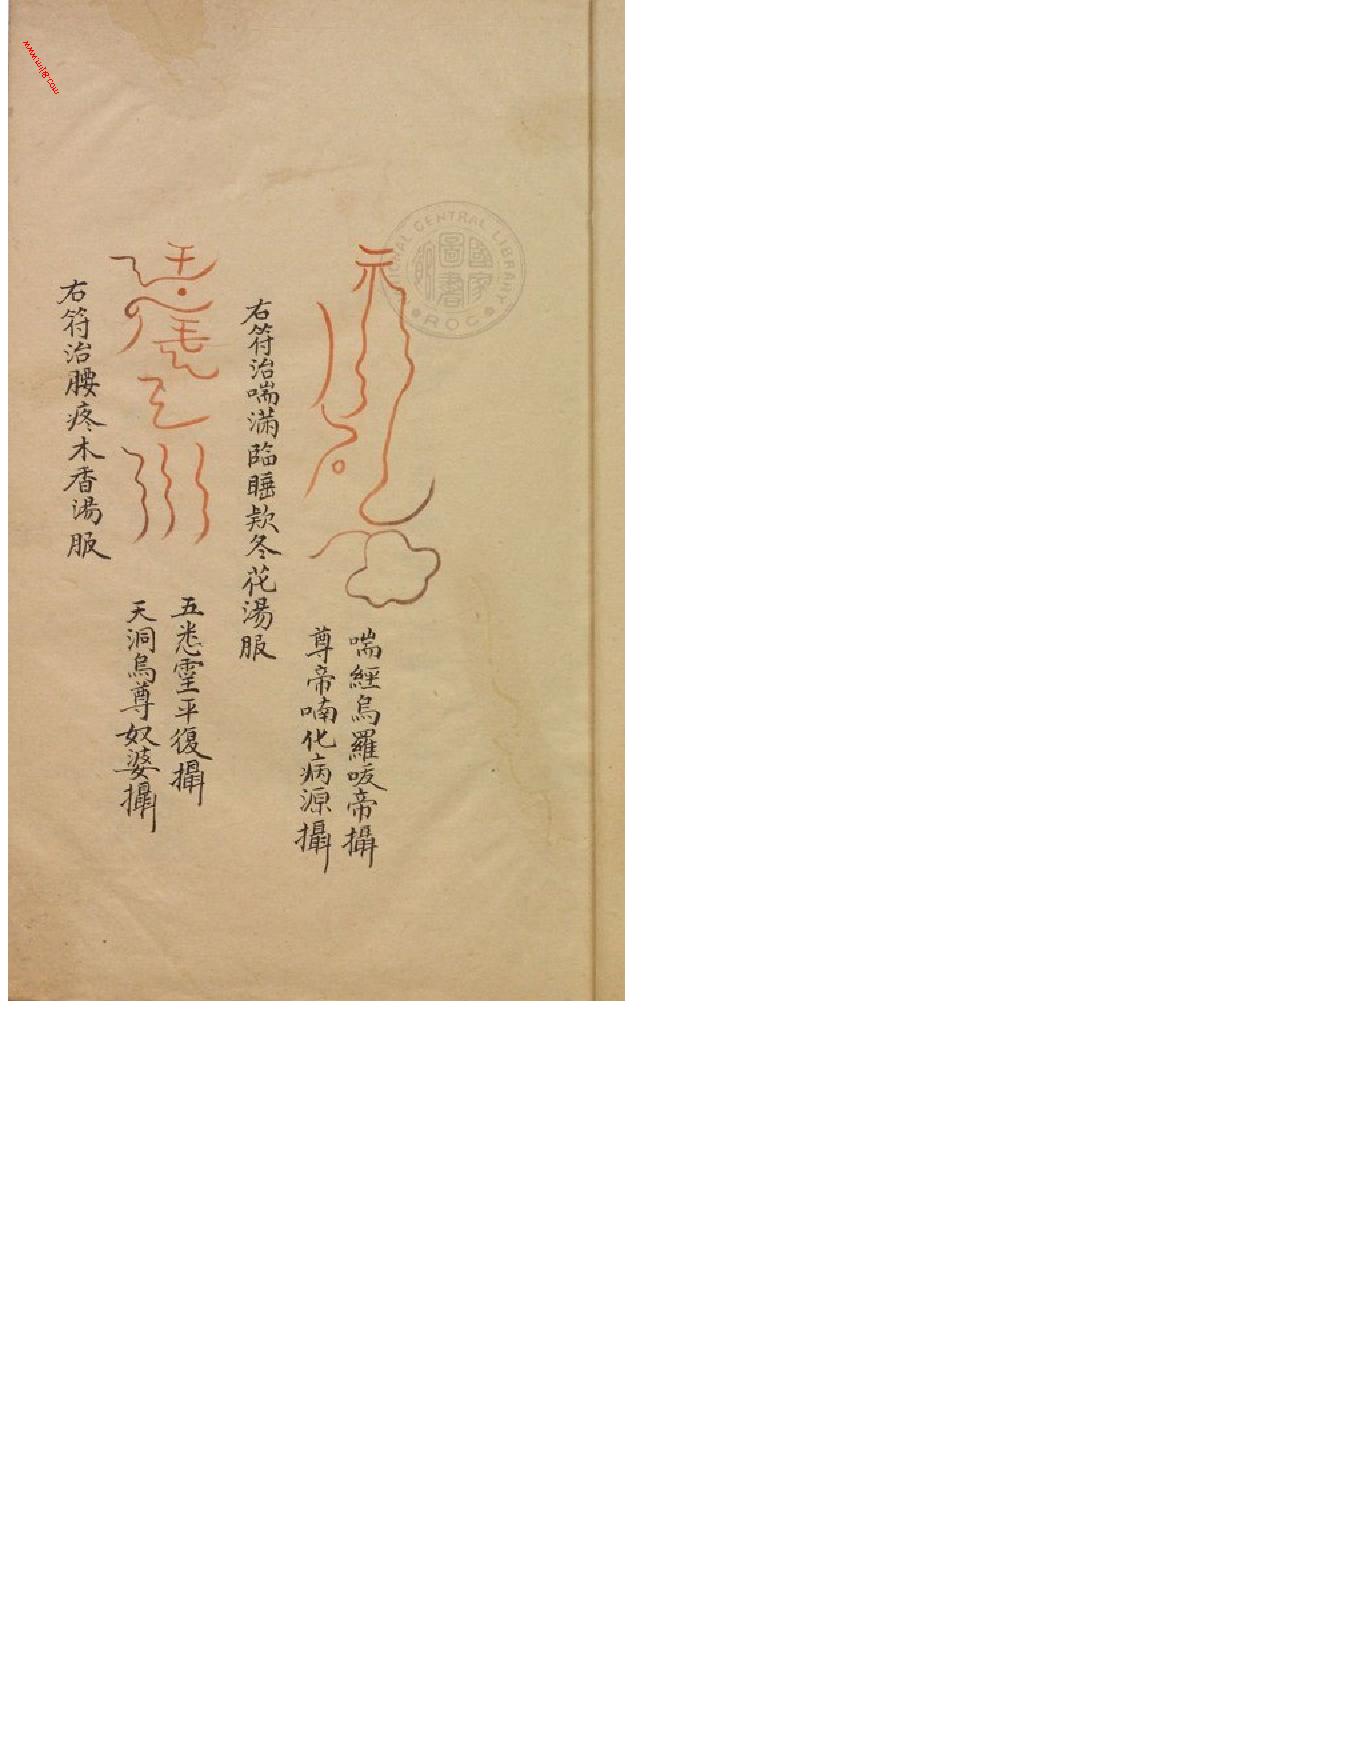 喘經烏羅唆帝攝
尊帝喃化病源攝
右符治喘滿臨睡款冬花湯服
五悉靈平復攝
天洞烏尊奴婆攝
右符治腰疼木香湯服
NATIONAL CENTRAL LIBRARY
R.O.C
國家圖書館